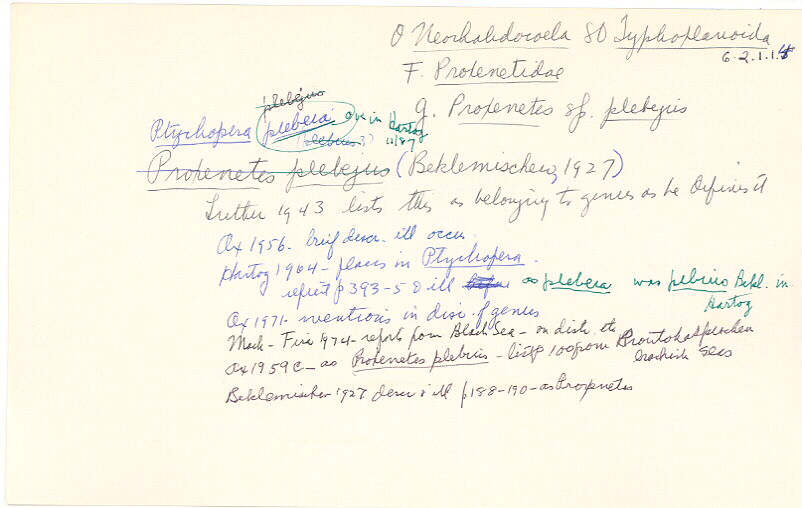 O Neorhabdocoela SO Typhloplanoida
6.2.1.1.4
F. Proxenetidae
g. Proxenetes sp. plebejus
plebejus
Ptychopera plebeia as in Hartog
(plebius?) 11/87
Proxenetes plebejus (Beklemischev, 1927)
Luther 1943 lists this as belonging to genus as he defines it
Ax 1956 - brief descr. ill occur.
Hartog 1964 - places in Ptychopera.
repeat p 393-5 & ill as plebeia was plebius Bekl. in
Hartog
Ax 1971 - mentions in disc. of genus
Mack-Fira 1974 - reports from Black Sea - on distr. etc
Ax 1959c - as Proxenetes plebius - list p 100 from
brackish seas
Beklemischev 1927 descr & ill p 188-190 - as Proxenetes